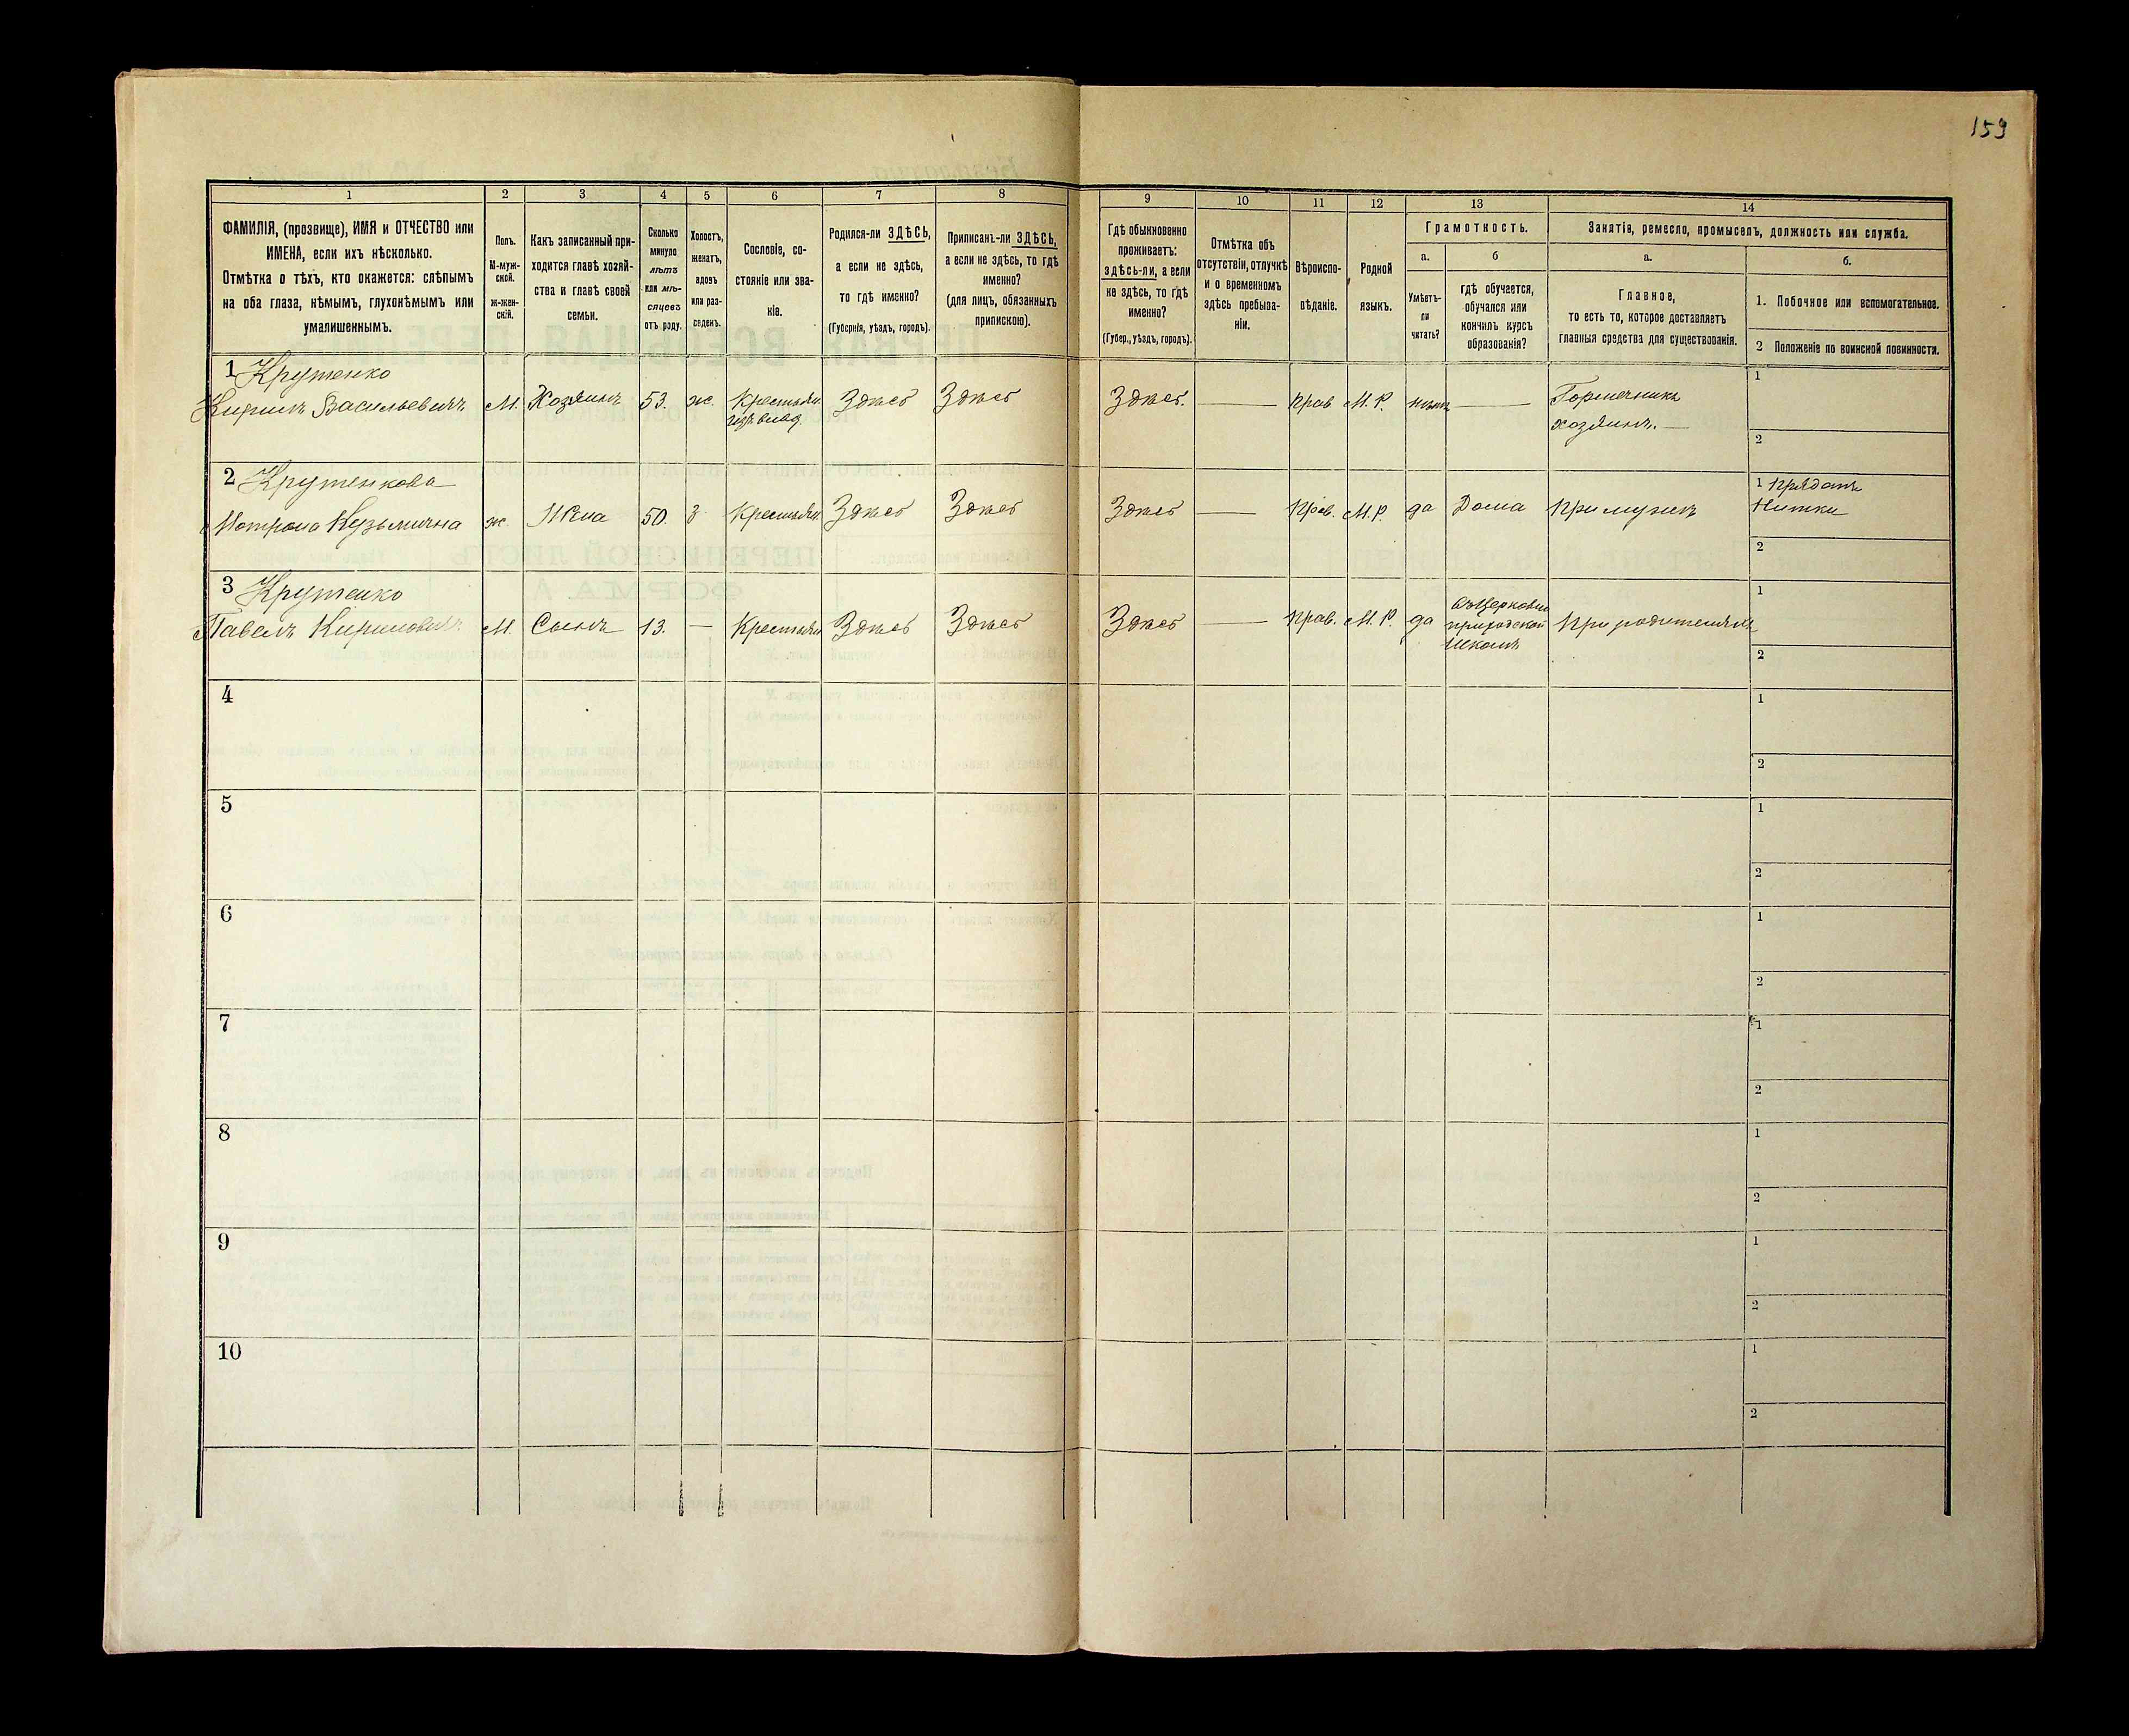 159
1 2 3 4 5 6 7 8 9 10 11 12 13 14
ФАМИЛІЯ, (прозвище), ИМЯ и ОТЧЕСТВО или
ИМЕНА, если ихъ нѣсколько.
Отмѣтка о тѣхъ, кто окажется: слѣпымъ
на оба глаза, нѣмымъ, глухонѣмымъ или
умалишеннымъ.
Полъ.
М-муж-
ской.
ж-жен-
скій.
Какъ записанный при-
ходится главѣ хозяй-
ства и главѣ своей
семьи.
Сколько
минуло
лѣтъ
или мѣ-
сяцевъ
отъ роду.
Холостъ,
женатъ,
вдовъ
или раз-
веденъ.
Сословіе, со-
стояніе или зва-
ніе.
Родился-ли ЗДѢСЬ,
а если не здѣсь,
то гдѣ именно?
(Губернія, уѣздъ, городъ).
Приписанъ-ли ЗДѢСЬ,
а если не здѣсь, то гдѣ
именно?
(для лицъ, обязанныхъ
припискою).
Гдѣ обыкновенно
проживаетъ:
здѣсь-ли, а если
не здѣсь, то гдѣ
именно?
(Губер., уѣздъ, городъ).
Отмѣтка объ
отсутствіи, отлучкѣ
и о временномъ
здѣсь пребыва-
ніи.
Вѣроиспо-
вѣданіе.
Родной
языкъ.
Грамотность.
а.
Умѣетъ-
ли
читать?
б
гдѣ обучается,
обучался или
кончилъ курсъ
образованія?
Занятіе, ремесло, промыселъ, должность или служба.
а.
Главное,
то есть то, которое доставляетъ
главныя средства для существованія.
б.
1. Побочное или вспомогательное.
2 Положеніе по воинской повинности.
1 Крутенко
Кирилъ Васильевичъ М. Хозяинъ 53. ж. Крестьян. Здѣсь Здѣсь Здѣсь. — Прав. М. Р. нѣтъ — Горшечникъ
хозяинъ. —
1
2
2 Крутенкова
Мотрона Кузьмична ж Жена 50. З Крестьян. Здѣсь Здѣсь Здѣсь — Прав. М. Р. да Дома При мужѣ
1 Прядать
Нитки
2
3 Крутенко
Павелъ Кириловичъ М. Сынъ 13. — Крестьян Здѣсь Здѣсь Здѣсь — Прав. М. Р. да
въ Церковно
приходской
Школѣ
При родителяхъ
1
2
4
1
2
5
1
2
6
1
2
7
1
2
8
1
2
9
1
2
10
1
2